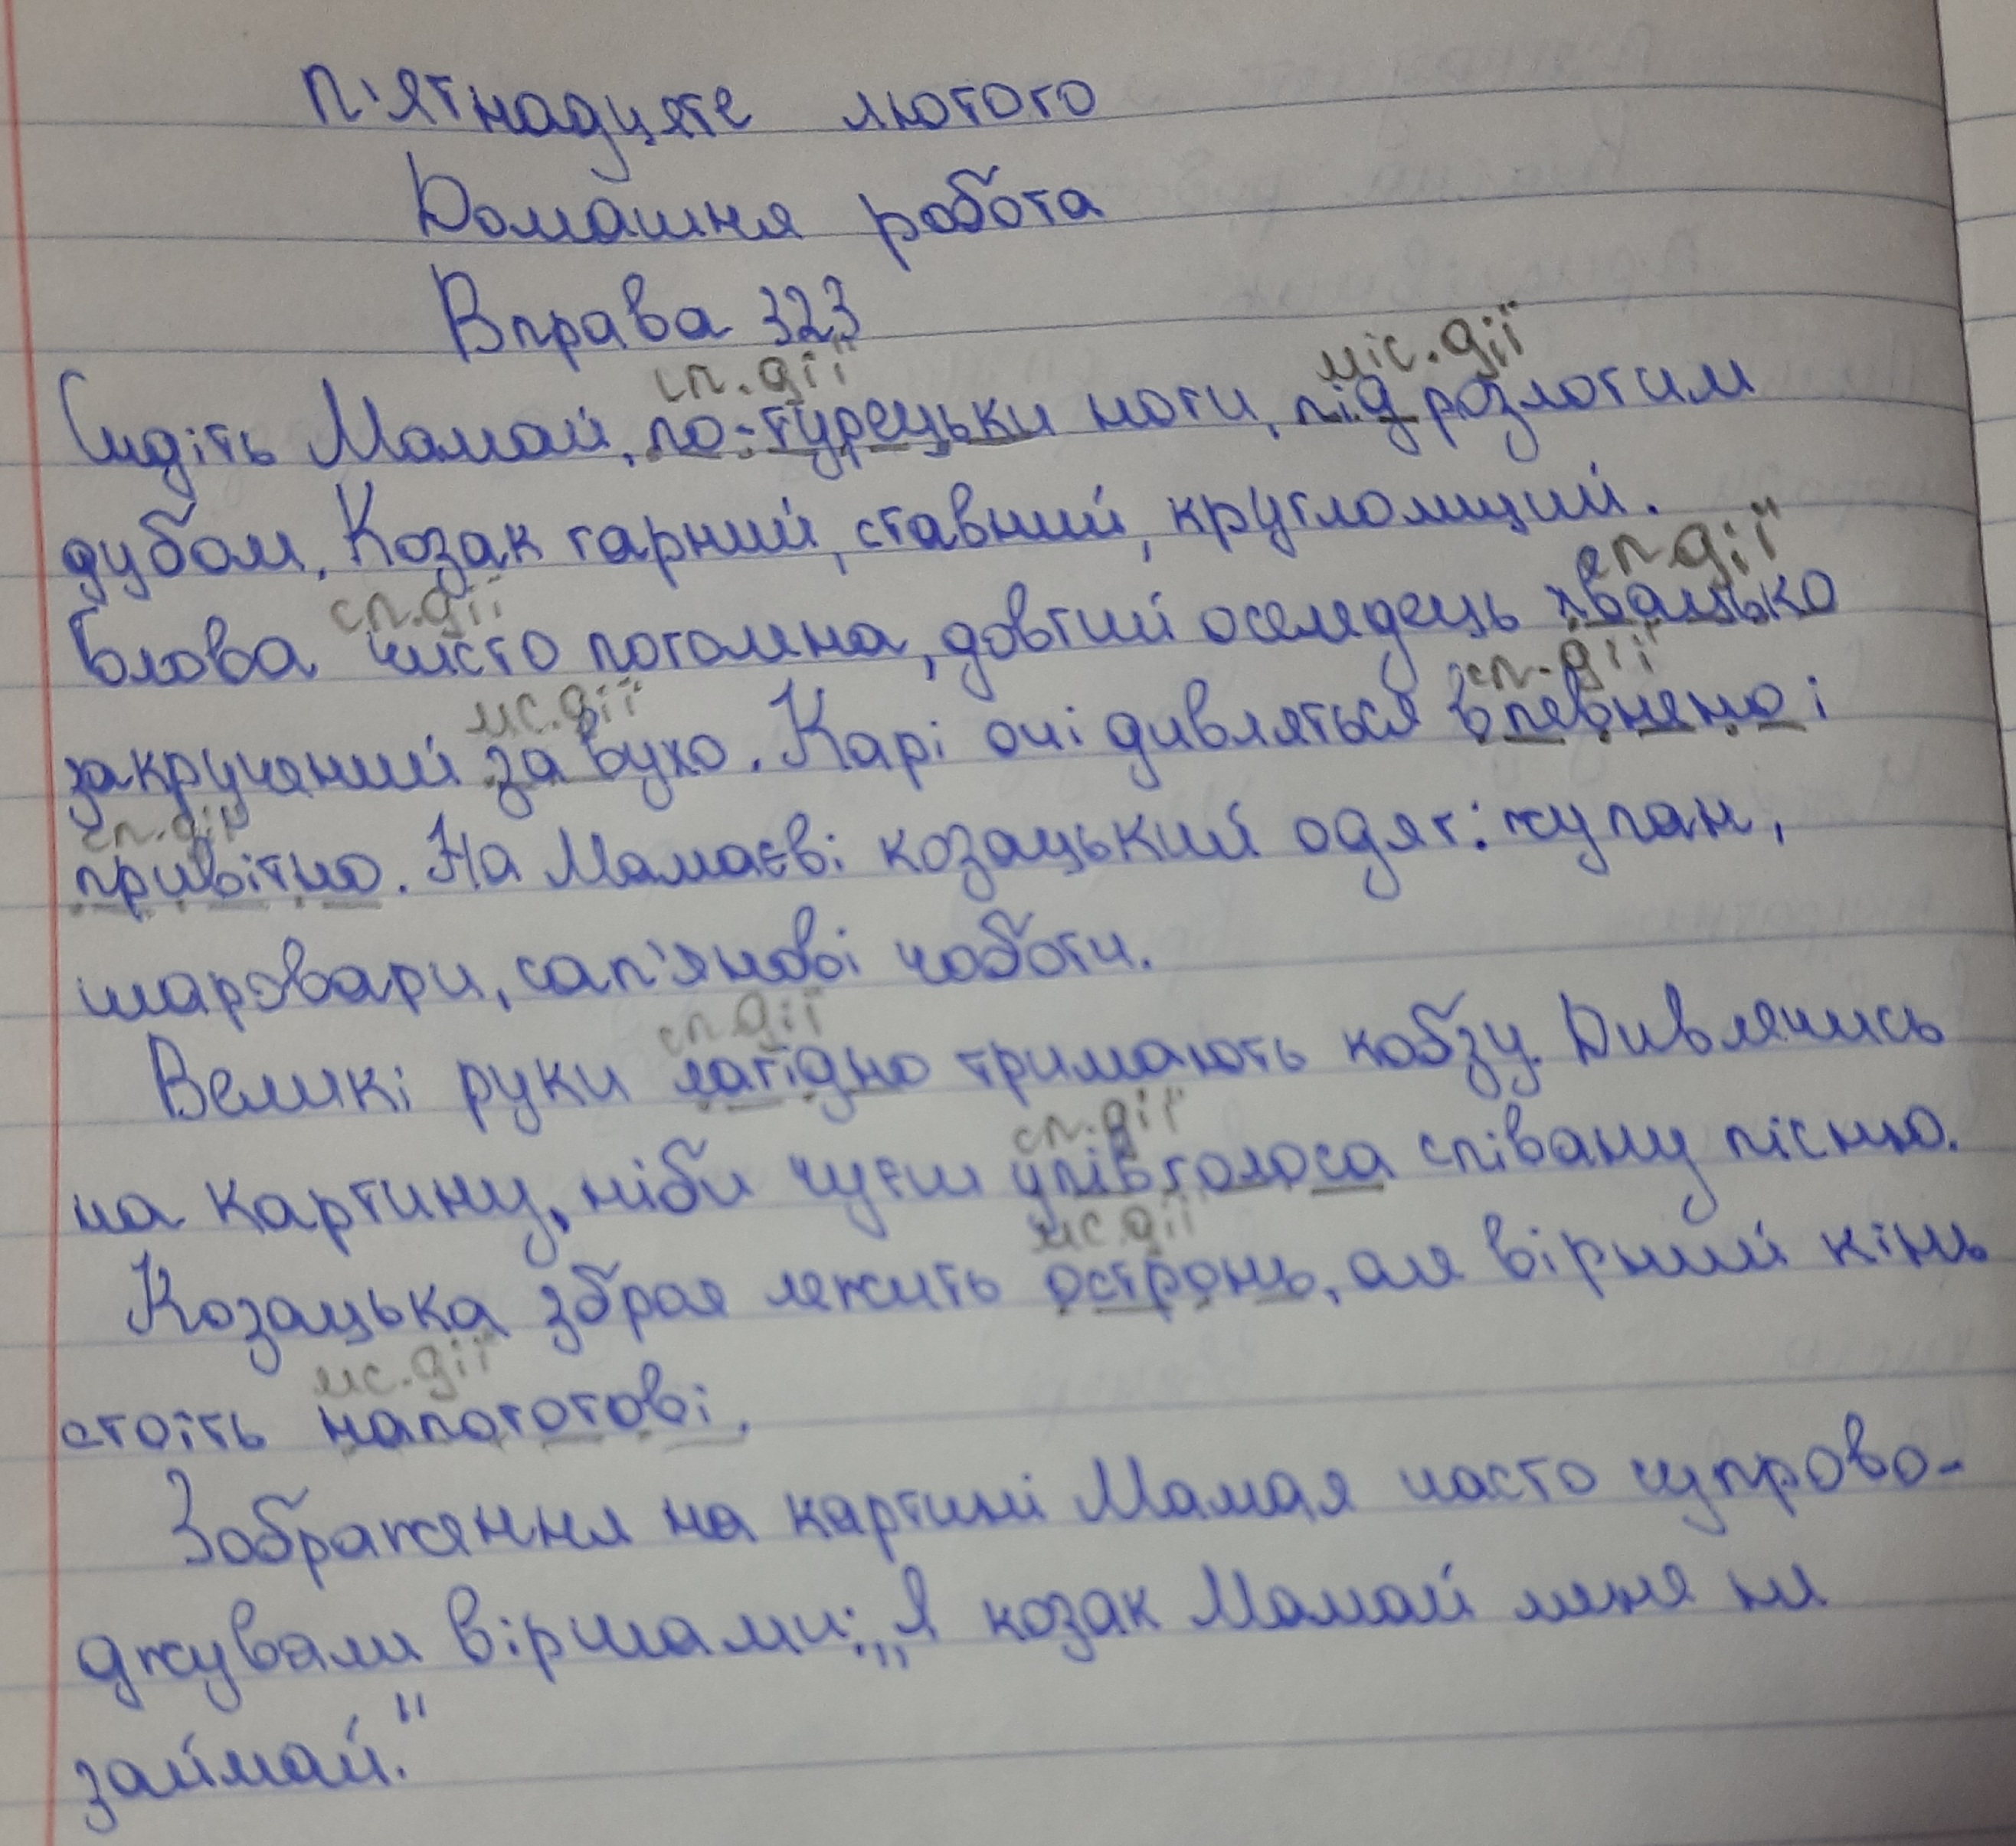 п'ятнадцяте лютого
Домашня робота
Вправа 323
сп.дії міс.дії
Сидіть Мамай, по-турецьки ноги, під розлогим
дубом. Козак гарний, ставний, круглолиций.
сп.дії сп.дії
Голова чисто поголена, довгий оселедець хвацько
мс.дії сп.дії
закручений за вухо. Карі очі дивляться впевнено і
сп.дії
привітно. На Мамаєві козацький одяг: жупан,
шаровари, сап'янові чоботи.
сп.дії
Великі руки лагідно тримають кобзу. Дивлячись
сп.дії
на картину, ніби чуєш упівголоса співану пісню.
мс.дії
Козацька зброя лежить осторонь, але вірний кінь
мс.дії
стоїть напоготові.
Зображення на картині Мамая часто супрово-
джували віршами: „Я козак Мамай мене не
займай."